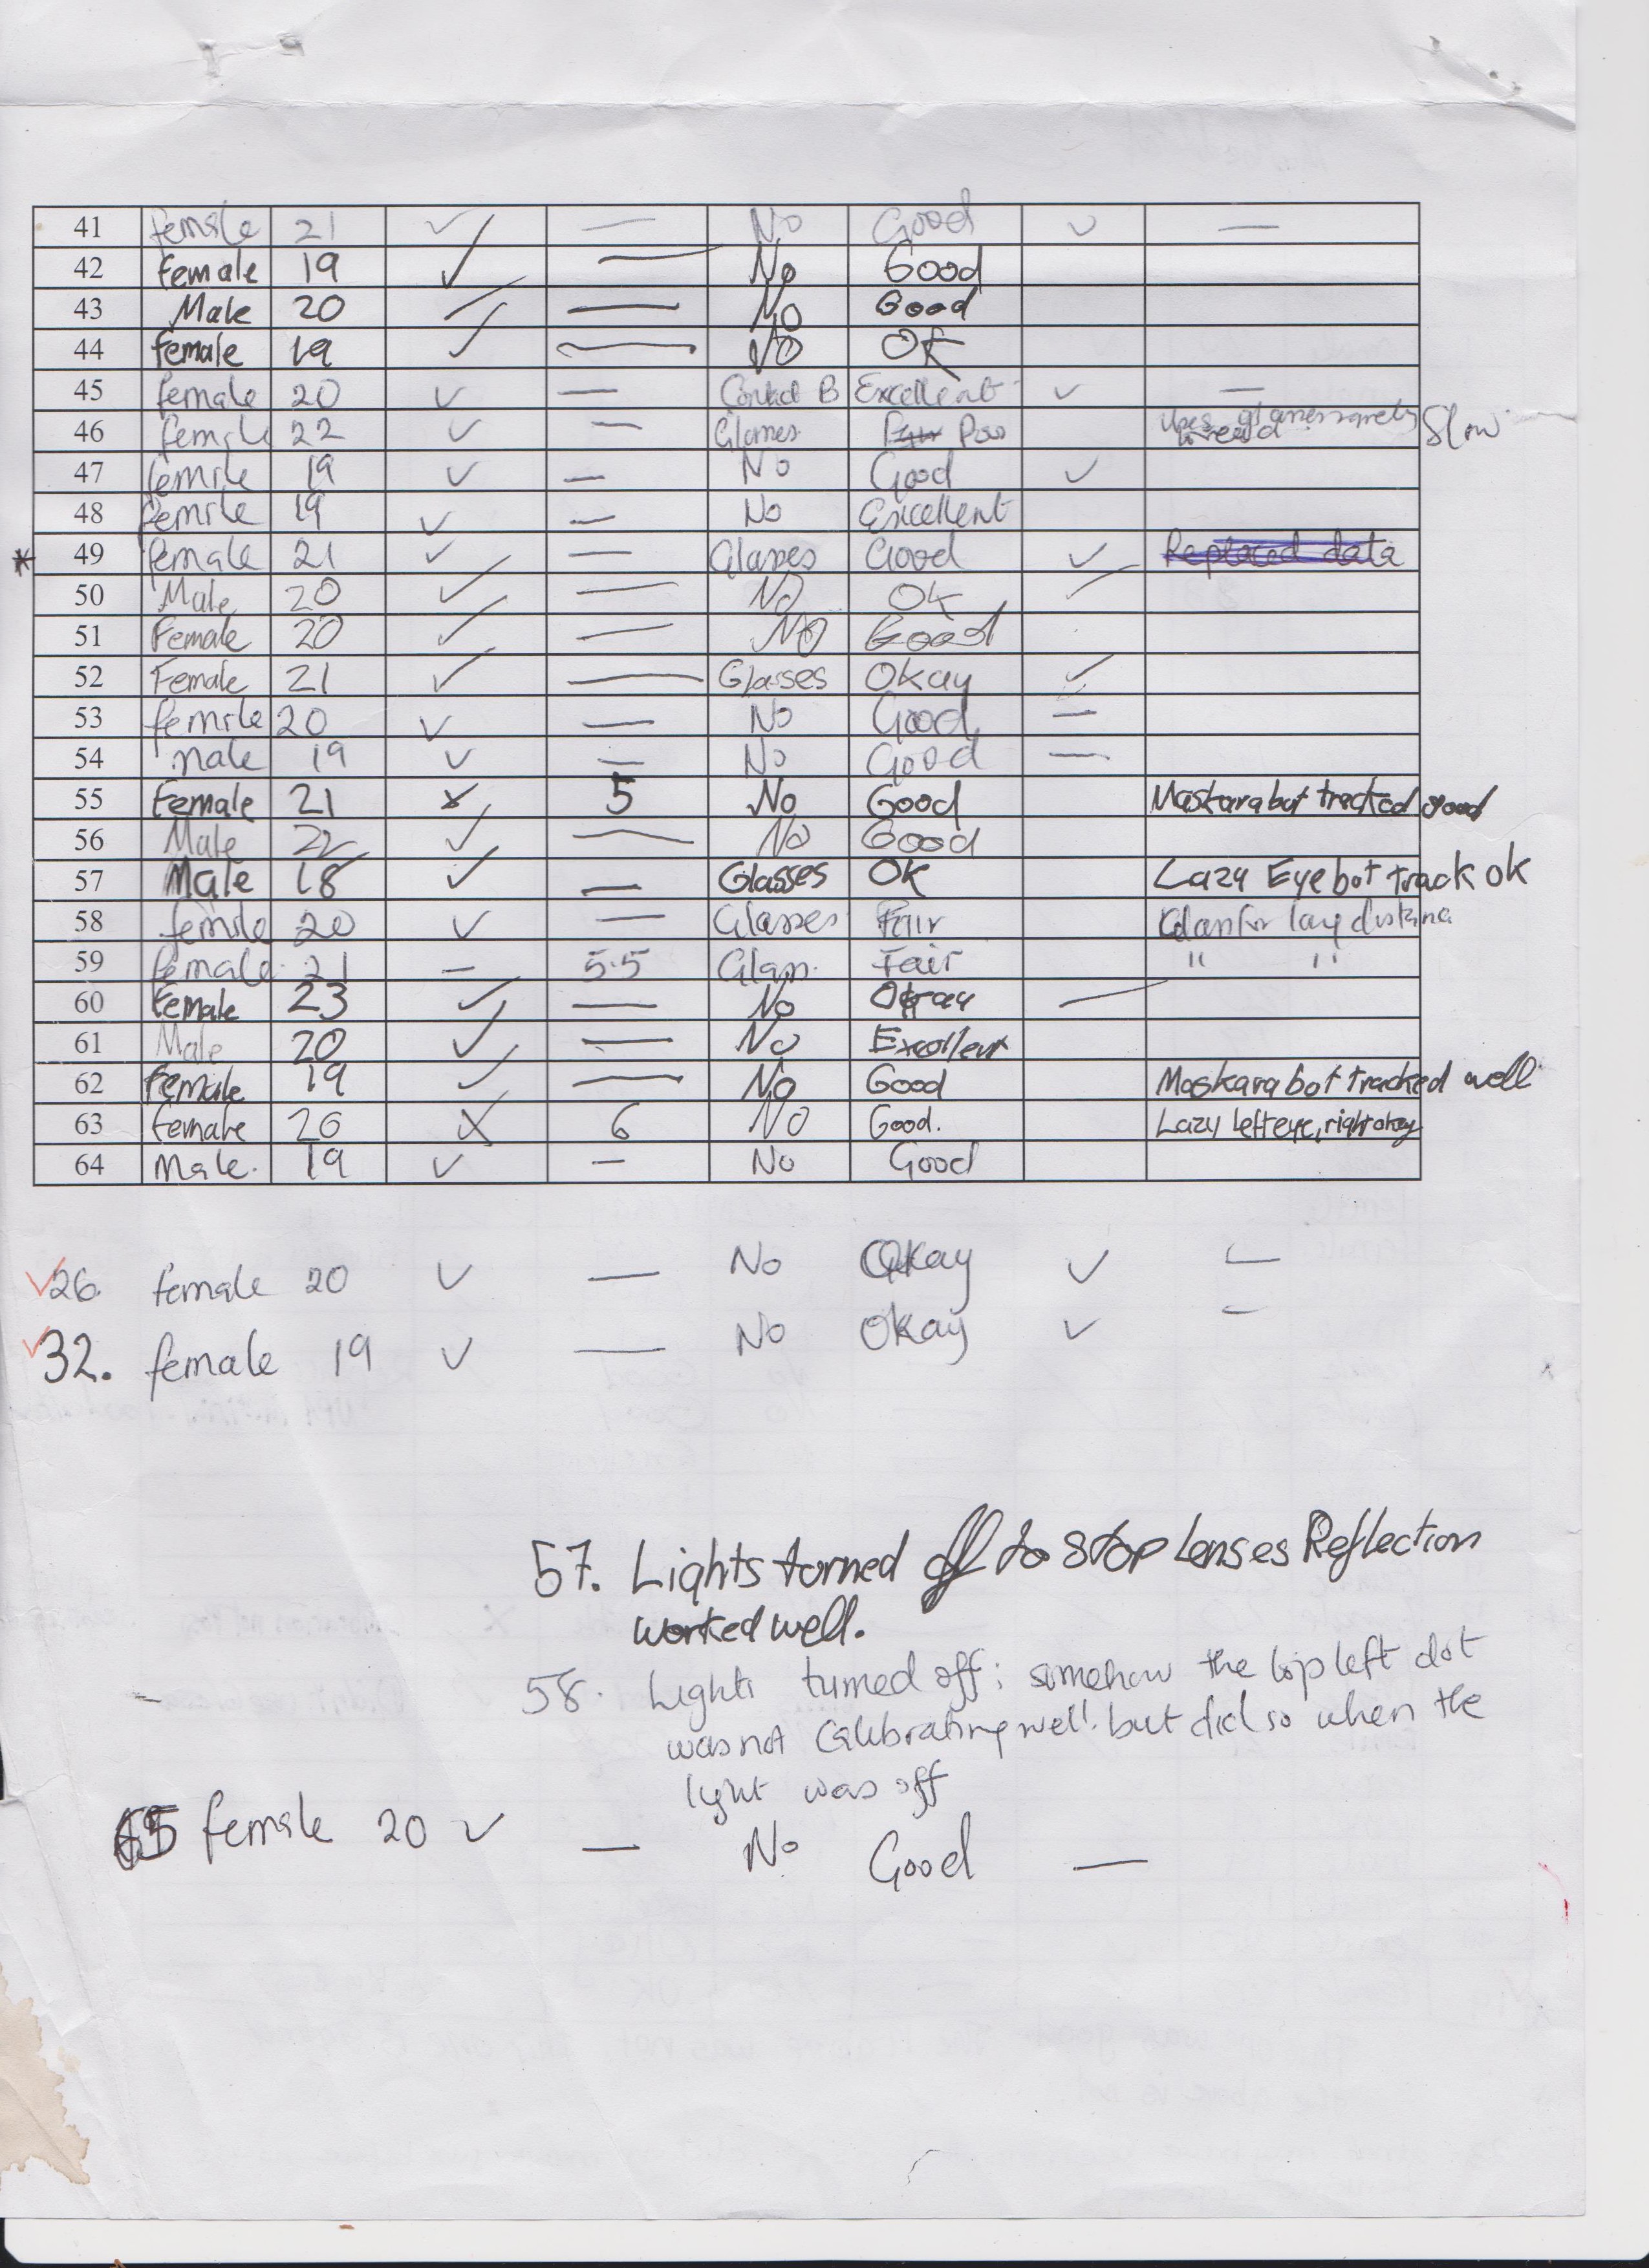 41 female 21 ✓ — No Good ✓ —
42 female 19 ✓ — No Good
43 Male 20 ✓ — No Good
44 female 19 ✓ — No OK
45 female 20 ✓ — Contact B Excellent ✓ —
46 female 22 ✓ — Glasses Poor Uses glasses rarely Slow
to read
47 female 19 ✓ — No Good ✓
48 female 19 ✓ — No Excellent
* 49 female 21 ✓ — Glasses Good ✓ Replaced data
50 Male 20 ✓ — No Ok ✓
51 Female 20 ✓ — No Good
52 Female 21 ✓ — Glasses Okay ✓
53 female 20 ✓ — No Good —
54 male 19 ✓ — No Good —
55 Female 21 x 5 No Good Maskara but tracked good
56 Male 22 ✓ — No Good
57 Male 18 ✓ — Glasses OK Lazy Eye but track ok
58 female 20 ✓ — Glasses Fair for long distance
59 female 21 — 5.5 Glass. Fair " "
60 Female 23 ✓ — No Okay —
61 Male 20 ✓ — No Excellent
62 Female 19 ✓ — No Good Maskara but tracked well
63 Female 20 X 6 No Good. Lazy left eye, right okay
64 Male. 19 ✓ — No Good
✓ 26. female 20 ✓ — No Okay ✓ —
✓ 32. female 19 ✓ — No Okay ✓ —
57. Lights turned off to stop Lenses Reflection
worked well.
58. Lights turned off; somehow the top left dot
was not Calibrating well. but did so when the
light was off
65 female 20 ✓ — No Good —